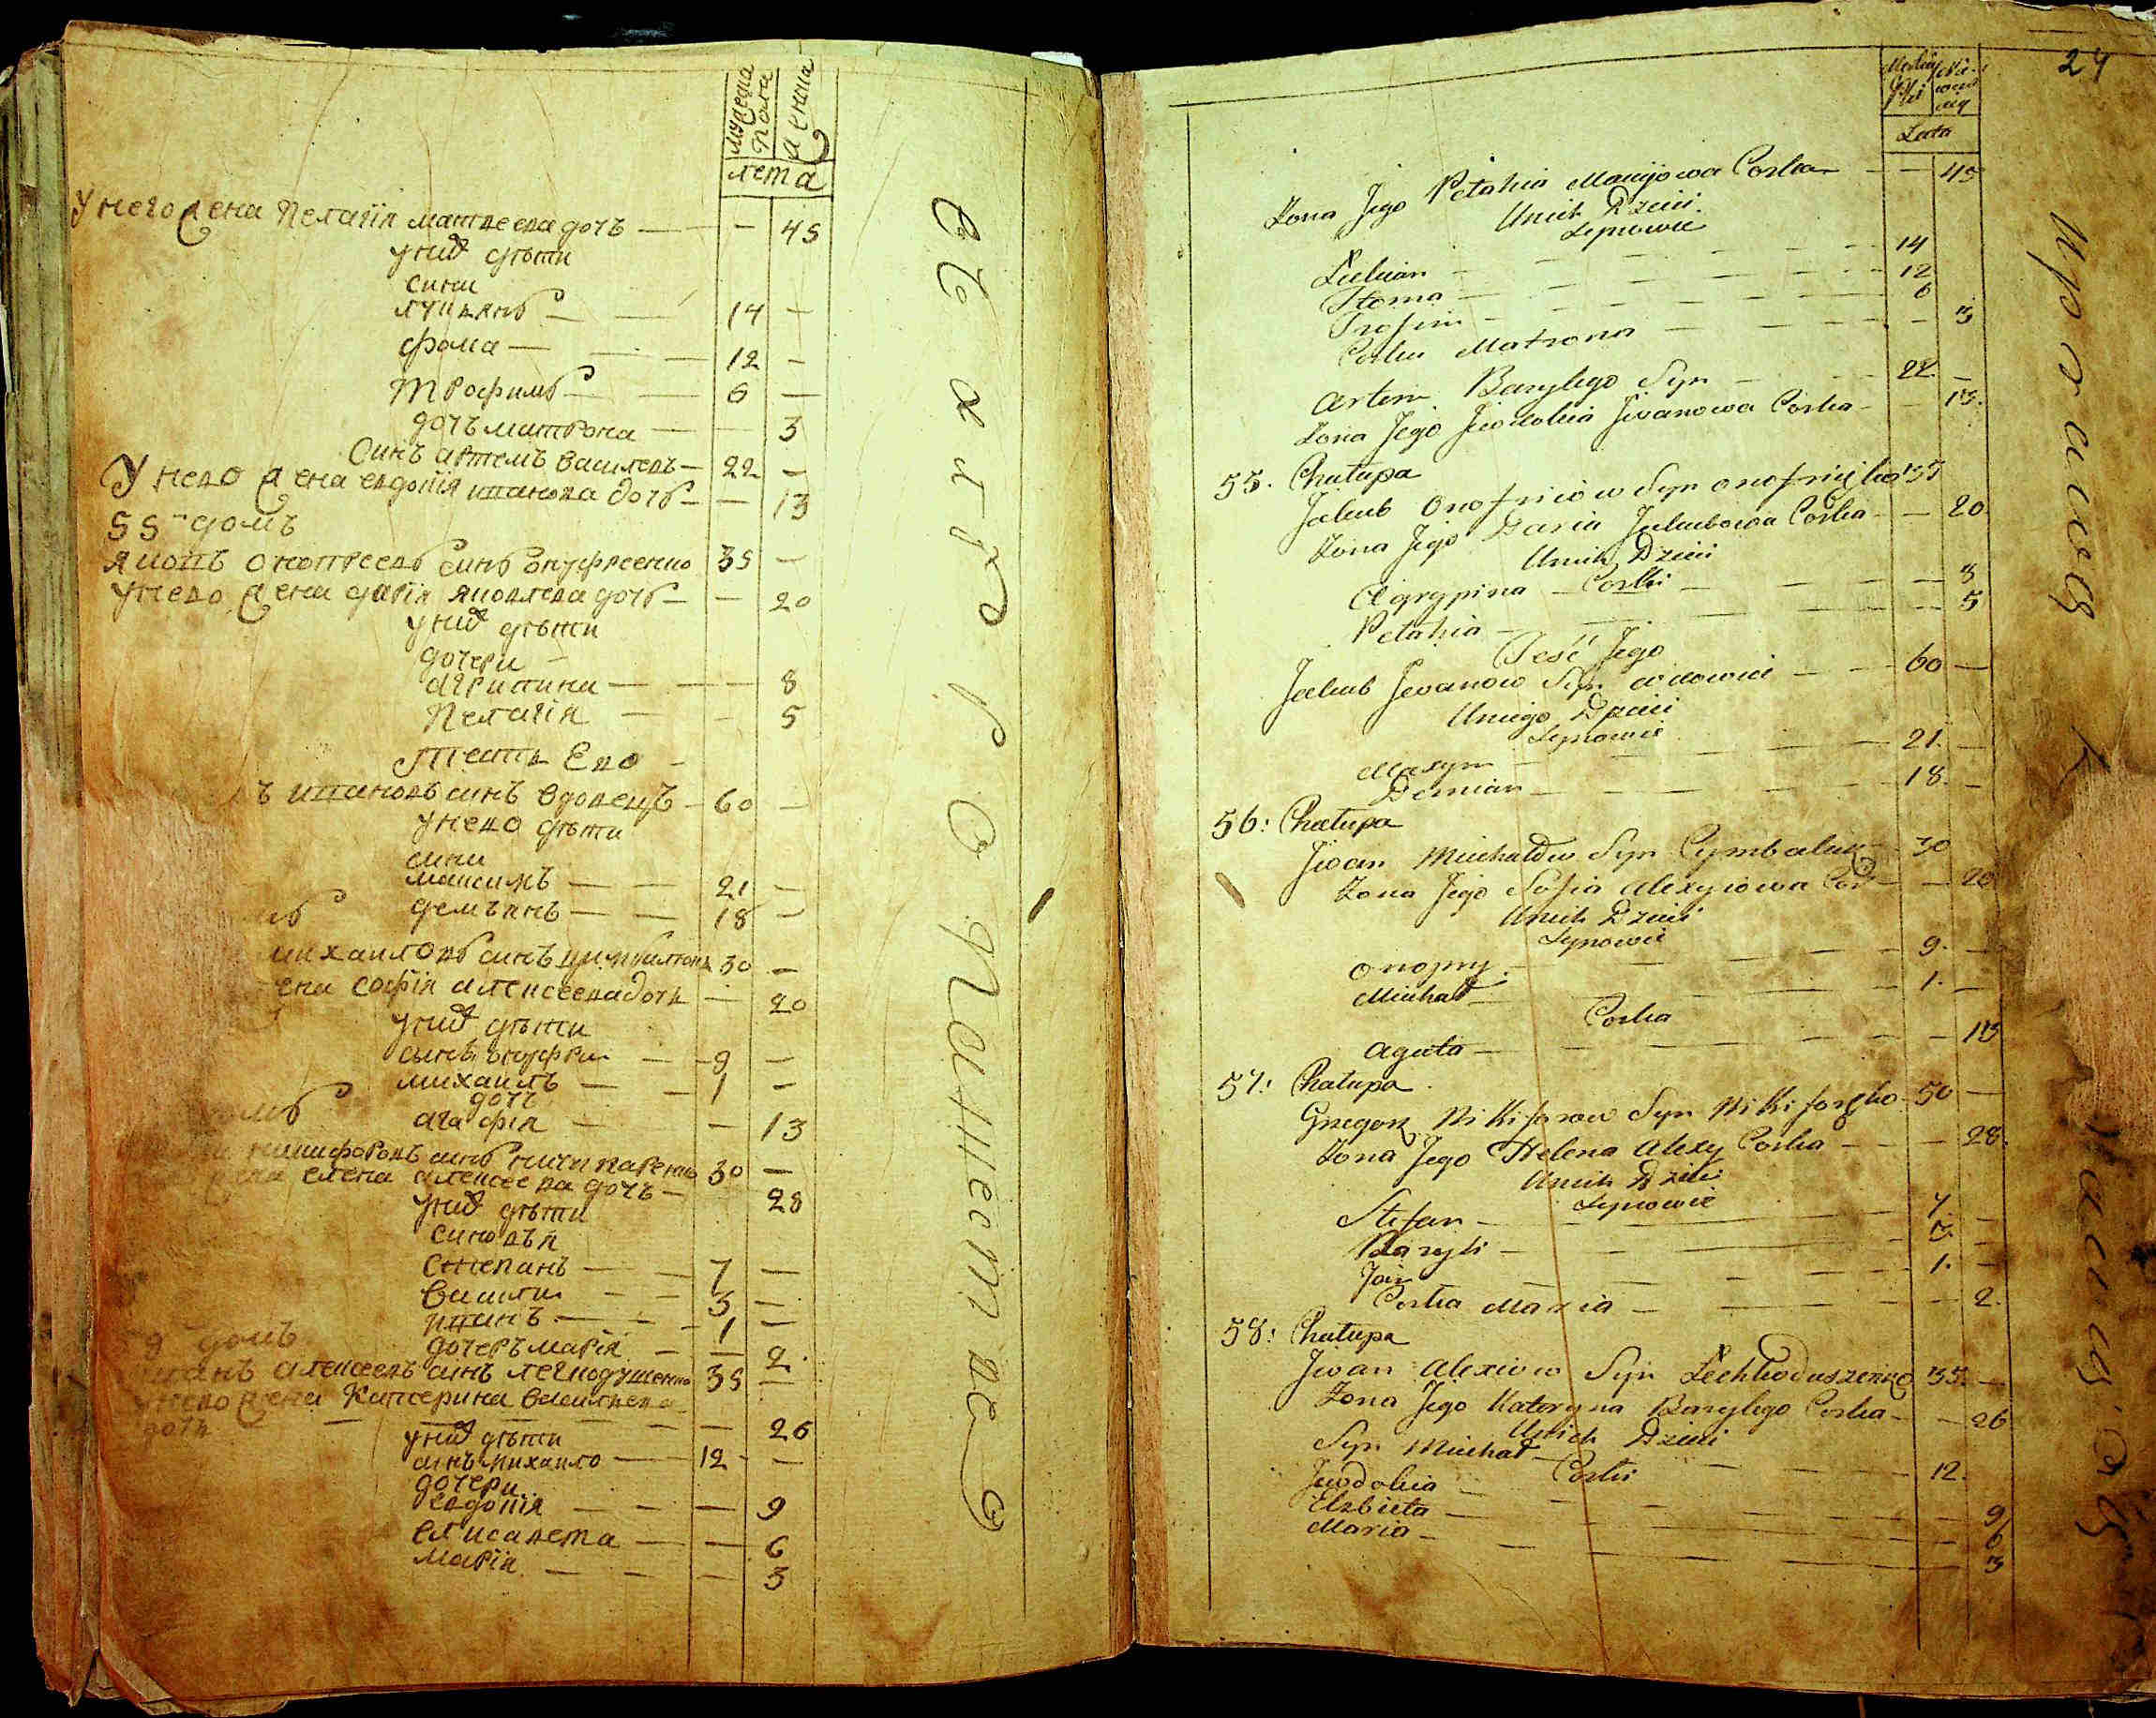 мужеска
пола
женска
лета
У него жена Пелагія матвеева дочъ — — 45
у них дѣти
сини
лукиянъ — — 14 —
фома — — 12 —
трофимъ — — 6 —
дочъ матрона — — 3
Синъ артемъ василевъ — 22 —
У нево жена евдокія иванова дочъ — — 13
55 домъ
Яковъ онопреевъ синъ онуфреенко 35 —
У нево жена дарія яковлева дочъ — — 20
у них дѣти
дочери —
агрипина — — 8
Пелагія — — 5
тесть Ево —
ъ ивановъ синъ вдовецъ — 60 —
у нево дѣти
сини
максимъ — — 21 —
демъянъ — — 18 —
михаиловъ синъ 30 —
ена софія алексеева дочь — 20
у них дѣти
сынъ онуфри — — 9 —
михаилъ — — 1 —
дочъ
агафія — — 13
никифоровъ синъ 30 —
елена алексеева дочъ — 28
у них дѣти
синовья
степанъ — — 7 —
васили — — 3 —
иванъ — — 1 —
дочеръ марія — — 2
домъ
иванъ алексеевъ синъ легкодушенко 35 —
у нево жена Катерина василева
дочь — — — 26
у них дѣти
синъ михаило — 12 —
дочери
евдокія — — — 9
елисавета — — 6
марія — — — 3
24
Lata
Żona Jego Pelahia Maciejowa Corka — — 45
Unich Dzieci
Synowie
Lukian — — 14
Homa — — 12
Trofim — — 6
Corka Matrona — — 3
Artem Bazylego Syn — 22 —
Żona Jego Jewdokia Jwanowa Corka — — 13
55. Chałupa
Jakub Onofriow Syn Onofriejko 35
Żona Jego Daria Jakubowa Corka — — 20
Unich Dzieci
Agrypina — Corki — — 8
Pelahia — — 5
Teść Jego
Jakub Jwanow Syn wdowiec — — 60 —
Uniego Dzieci
Synowie
Maxym — — 21. —
Demian — — 18. —
56: Chałupa
Jwan Michałow Syn Cymbaluk — 30
Żona Jego Sofia Alexyiowa Cor — — 20
Unich Dzieci
Synowie
Onofry — — 9. —
Michał — — 1. —
Corka
Agata — — 13
57: Chałupa
Gregorz Nikiforow Syn Nikiforejko 50 —
Żona Jego Helena Alexy Corka — — 28.
Unich Dzieci
Synowie
Stefan — — 7. —
Bazyli — — 3. —
Jan — — 1. —
Corka Maria — — 2.
58: Chałupa
Jwan Alexiow Syn Lechkoduszenko 35. —
Żona Jego Kateryna Bazylego Corka — — 26
Unich Dzieci
Syn Michał — — 12.
Corki
Jewdokia — — 9
Elzbieta — — 6
Maria — — 3